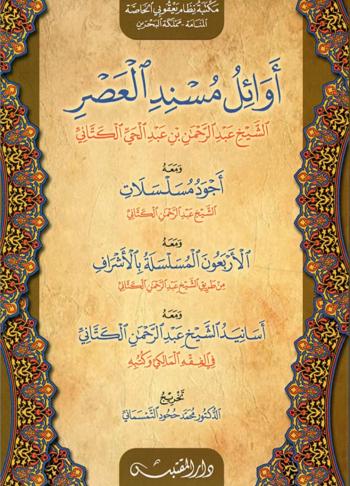 مكتبة نظام يعقوبي الخاصة
المنامة - مملكة البحرين
أَوَائِلُ مُسْنِدِ الْعَصْرِ
الشَّيْخ عَبْدِ الرَّحْمٰنِ بْنِ عَبْدِ الْحَيِّ الْكَتَّانِيِّ
وَمَعَهُ
أَجْوَدُ مُسَلْسَلَاتِ
الشَّيْخ عَبْدِ الرَّحْمٰنِ الْكَتَّانِيِّ
وَمَعَهُ
الْأَرْبَعُونَ الْمُسَلْسَلَةُ بِالْأَشْرَافِ
مِنْ طَرِيقِ الشَّيْخ عَبْدِ الرَّحْمٰنِ الْكَتَّانِيِّ
وَمَعَهُ
أَسَانِيدُ الشَّيْخ عَبْدِ الرَّحْمٰنِ الْكَتَّانِيِّ
فِي الْفِقْهِ الْمَالِكِيِّ وَكُتُبِهِ
تَخْرِيجُ
الدُّكْتُور مُحَمَّد حَحُود التَّمْسَمَانِيِّ
دار المقتبس